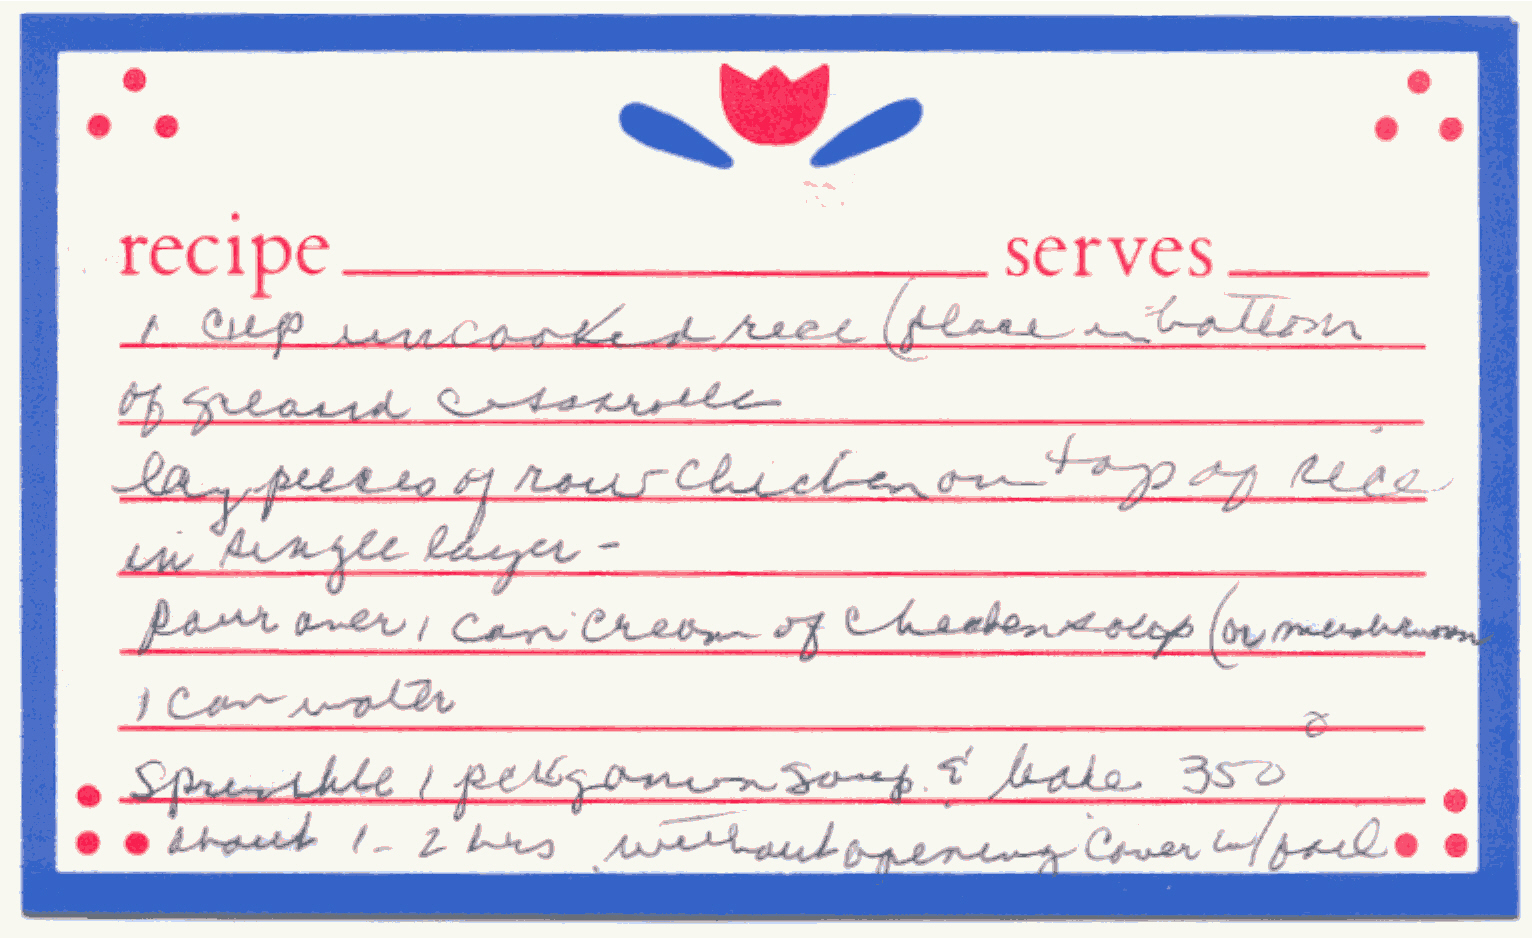 recipe serves
1 cup uncooked rice (place in bottom
of greased casserole
lay pieces of raw chicken on top of rice
in single layer -
pour over 1 can cream of chicken soup (or mushroom
1 can water
sprinkle 1 pckg onion soup. & bake 350°
about 1-2 hrs without opening cover w/foil